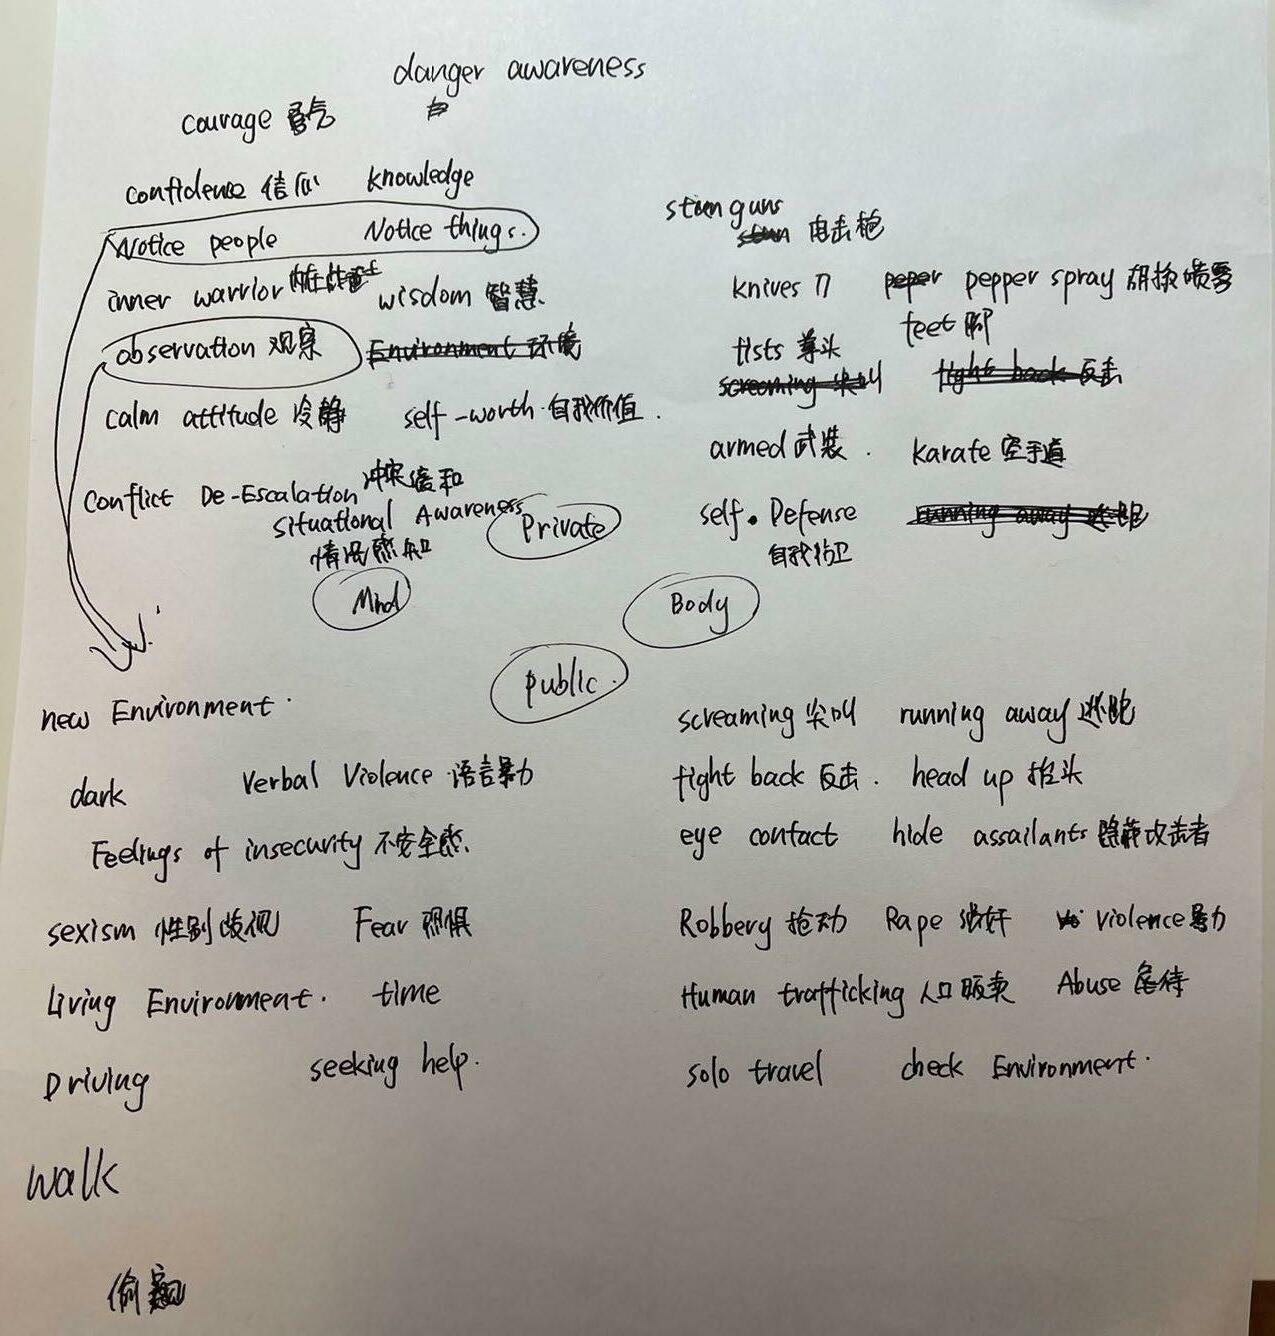 danger awareness
courage 勇气
confidence 信心 knowledge
Notice people Notice things.
inner warrior wisdom 智慧
observation 观察 Environment 环境
calm attitude 冷静 self-worth 自我价值.
Conflict De-Escalation 冲突缓和
situational Awareness
情况感知
Private
Mind
stun guns
stun 电击枪
knives 刀 peper pepper spray 胡椒喷雾
feet 脚
fists 拳头
screaming 尖叫 fight back 反击
armed 武装. Karate 空手道
self. Defense running away 逃跑
自我防卫
Body
public.
new Environment.
dark Verbal Violence 语言暴力
Feelings of insecurity 不安全感.
sexism 性别歧视 Fear 恐惧
Living Environment. time
Driving seeking help.
walk
偷
screaming 尖叫 running away 逃跑
fight back 反击. head up 抬头
eye contact hide assailants 隐藏攻击者
Robbery 抢劫 Rape 强奸 violence 暴力
Human trafficking 人口贩卖 Abuse 虐待
solo travel check Environment.